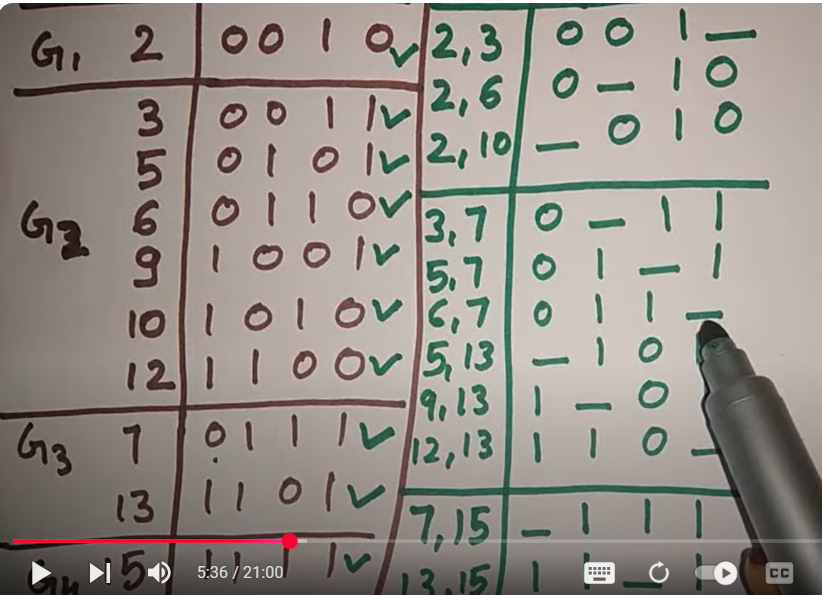 G1 2 0 0 1 0 ✓
G2 3 0 0 1 1 ✓
5 0 1 0 1 ✓
6 0 1 1 0 ✓
9 1 0 0 1 ✓
10 1 0 1 0 ✓
12 1 1 0 0 ✓
G3 7 0 1 1 1 ✓
13 1 1 0 1 ✓
G4 15 1 1 1 1 ✓
2,3 0 0 1 —
2,6 0 — 1 0
2,10 — 0 1 0
3,7 0 — 1 1
5,7 0 1 — 1
6,7 0 1 1 —
5,13 — 1 0
9,13 1 — 0
12,13 1 1 0 —
7,15 — 1 1 1
13,15 1 1 — 1
5:36 / 21:00
CC